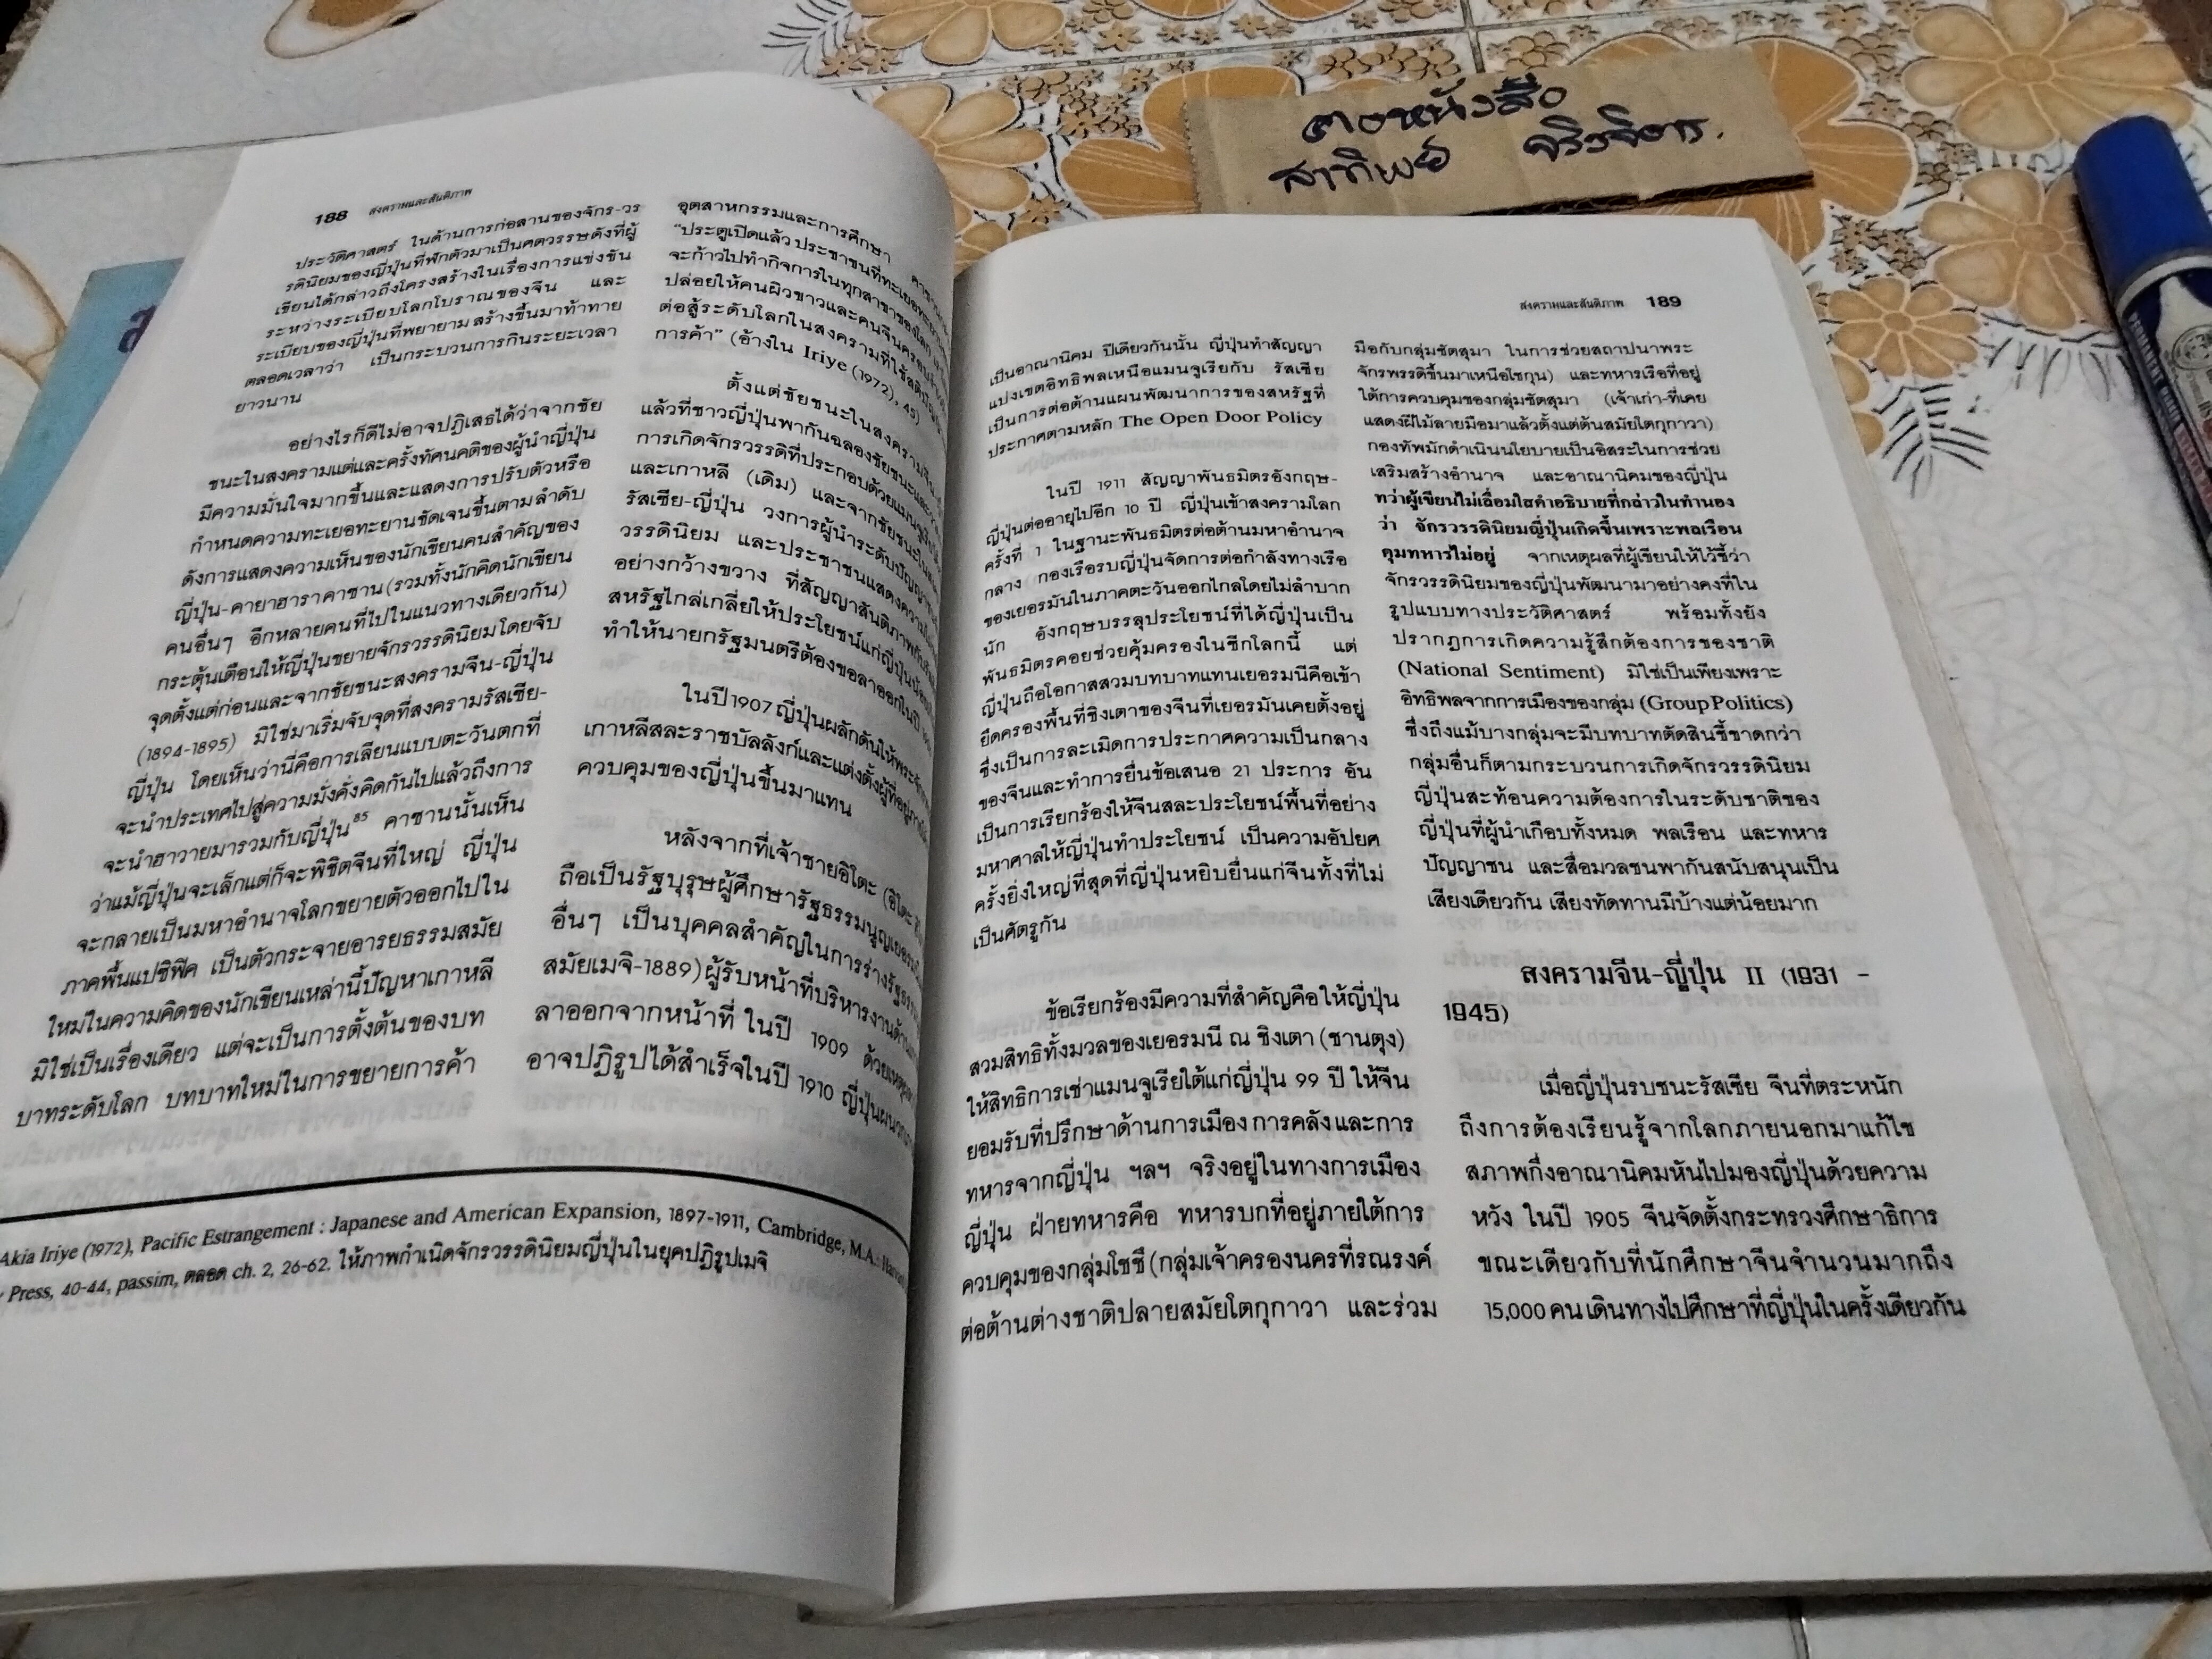 ของหนังสือ
สาทิพย์
188 สงครามและสันติภาพ
ประวัติศาสตร์ ในด้านการก่อสานของจักร-วร
รดินิยมของญี่ปุ่นที่ฟักตัวมาเป็นศตวรรษดังที่ผู้
เขียนได้กล่าวถึงโครงสร้างในเรื่องการแข่งขัน
ระหว่างระเบียบโลกโบราณของจีน และ
ระเบียบของญี่ปุ่นที่พยายามสร้างขึ้นมาท้าทาย
ตลอดเวลาว่า เป็นกระบวนการกินระยะเวลา
ยาวนาน
อย่างไรก็ดีไม่อาจปฏิเสธได้ว่าจากชัย
ชนะในสงครามแต่ละครั้งทัศนคติของผู้นำญี่ปุ่น
มีความมั่นใจมากขึ้นและแสดงการปรับตัวหรือ
กำหนดความทะเยอทะยานชัดเจนขึ้นตามลำดับ
ดังการแสดงความเห็นของนักเขียนคนสำคัญของ
ญี่ปุ่น-คายาฮาราคาซาน(รวมทั้งนักคิดนักเขียน
คนอื่นๆ อีกหลายคนที่ไปในแนวทางเดียวกัน)
กระตุ้นเตือนให้ญี่ปุ่นขยายจักรวรรดินิยมโดยจับ
จุดตั้งแต่ก่อนและจากชัยชนะสงครามจีน-ญี่ปุ่น
(1894-1895) มิใช่มาเริ่มจับจุดที่สงครามรัสเซีย-
ญี่ปุ่น โดยเห็นว่านี่คือการเลียนแบบตะวันตกที่
จะนำประเทศไปสู่ความมั่งคั่งคิดกันไปแล้วถึงการ
จะนำฮาวายมารวมกับญี่ปุ่น85 คาซานนั้นเห็น
ว่าแม้ญี่ปุ่นจะเล็กแต่ก็จะพิชิตจีนที่ใหญ่ ญี่ปุ่น
จะกลายเป็นมหาอำนาจโลกขยายตัวออกไปใน
ภาคพื้นแปซิฟิค เป็นตัวกระจายอารยธรรมสมัย
ใหม่ในความคิดของนักเขียนเหล่านี้ปัญหาเกาหลี
มิใช่เป็นเรื่องเดียว แต่จะเป็นการตั้งต้นของบท
บาทระดับโลก บทบาทใหม่ในการขยายการค้า
อุตสาหกรรมและการศึกษา
"ประตูเปิดแล้ว ประชาชนที่ทะเยอทะยาน
จะก้าวไปทำกิจการในทุกสาขาของโลก
ปล่อยให้คนผิวขาวและคนจีนครอบงำ
ต่อสู้ระดับโลกในสงครามที่ใช้สติปัญญา
การค้า" (อ้างใน Iriye (1972), 45)
ตั้งแต่ชัยชนะในสงครามจีน
แล้วที่ชาวญี่ปุ่นพากันฉลองชัยชนะและ
การเกิดจักรวรรดิที่ประกอบด้วยแมนจูเรีย
และเกาหลี (เดิม) และจากชัยชนะใน
รัสเซีย-ญี่ปุ่น วงการผู้นำระดับปัญญาชน
วรรดินิยม และประชาชนแสดงความ
อย่างกว้างขวาง ที่สัญญาสันติภาพ
สหรัฐไกล่เกลี่ยให้ประโยชน์แก่ญี่ปุ่น
ทำให้นายกรัฐมนตรีต้องขอลาออกในปี
ในปี 1907 ญี่ปุ่นผลักดันให้
เกาหลีสละราชบัลลังก์และแต่งตั้งผู้ที่อยู่
ควบคุมของญี่ปุ่นขึ้นมาแทน
หลังจากที่เจ้าชายอิโตะ (อิโตะ
ถือเป็นรัฐบุรุษผู้ศึกษารัฐธรรมนูญ
อื่นๆ เป็นบุคคลสำคัญในการร่าง
สมัยเมจิ-1889) ผู้รับหน้าที่บริหารงาน
ลาออกจากหน้าที่ ในปี 1909
อาจปฏิรูปได้สำเร็จในปี 1910 ญี่ปุ่นผนวก
Akia Iriye (1972), Pacific Estrangement : Japanese and American Expansion, 1897-1911, Cambridge, M.A.:
Press, 40-44, passim, ตลอด ch. 2, 26-62. ให้ภาพกำเนิดจักรวรรดินิยมญี่ปุ่นในยุคปฏิรูปเมจิ
สงครามและสันติภาพ 189
เป็นอาณานิคม ปีเดียวกันนั้น ญี่ปุ่นทำสัญญา
แบ่งเขตอิทธิพลเหนือแมนจูเรียกับ รัสเซีย
เป็นการต่อต้านแผนพัฒนาการของสหรัฐที่
ประกาศตามหลัก The Open Door Policy
ในปี 1911 สัญญาพันธมิตรอังกฤษ-
ญี่ปุ่นต่ออายุไปอีก 10 ปี ญี่ปุ่นเข้าสงครามโลก
ครั้งที่ 1 ในฐานะพันธมิตรต่อต้านมหาอำนาจ
กลาง กองเรือรบญี่ปุ่นจัดการต่อกำลังทางเรือ
ของเยอรมันในภาคตะวันออกไกลโดยไม่ลำบาก
นัก อังกฤษบรรลุประโยชน์ที่ได้ญี่ปุ่นเป็น
พันธมิตรคอยช่วยคุ้มครองในซีกโลกนี้ แต่
ญี่ปุ่นถือโอกาสสวมบทบาทแทนเยอรมนีคือเข้า
ยึดครองพื้นที่ชิงเตาของจีนที่เยอรมันเคยตั้งอยู่
ซึ่งเป็นการละเมิดการประกาศความเป็นกลาง
ของจีนและทำการยื่นข้อเสนอ 21 ประการ อัน
เป็นการเรียกร้องให้จีนสละประโยชน์พื้นที่อย่าง
มหาศาลให้ญี่ปุ่นทำประโยชน์ เป็นความอัปยศ
ครั้งยิ่งใหญ่ที่สุดที่ญี่ปุ่นหยิบยื่นแก่จีนทั้งที่ไม่
เป็นศัตรูกัน
ข้อเรียกร้องมีความที่สำคัญคือให้ญี่ปุ่น
สวมสิทธิทั้งมวลของเยอรมนี ณ ชิงเตา (ชานตุง)
ให้สิทธิการเช่าแมนจูเรียใต้แก่ญี่ปุ่น 99 ปี ให้จีน
ยอมรับที่ปรึกษาด้านการเมือง การคลังและการ
ทหารจากญี่ปุ่น ฯลฯ จริงอยู่ในทางการเมือง
ญี่ปุ่น ฝ่ายทหารคือ ทหารบกที่อยู่ภายใต้การ
ควบคุมของกลุ่มโชชึ (กลุ่มเจ้าครองนครที่รณรงค์
ต่อต้านต่างชาติปลายสมัยโตกุกาวา และร่วม
มือกับกลุ่มซัตสุมา ในการช่วยสถาปนาพระ
จักรพรรดิขึ้นมาเหนือโชกุน) และทหารเรือที่อยู่
ใต้การควบคุมของกลุ่มซัตสุมา (เจ้าเก่า-ที่เคย
แสดงฝีไม้ลายมือมาแล้วตั้งแต่ต้นสมัยโตกุกาวา)
กองทัพมักดำเนินนโยบายเป็นอิสระในการช่วย
เสริมสร้างอำนาจ และอาณานิคมของญี่ปุ่น
ทว่าผู้เขียนไม่เลื่อมใสคำอธิบายที่กล่าวในทำนอง
ว่า จักรวรรดินิยมญี่ปุ่นเกิดขึ้นเพราะพลเรือน
คุมทหารไม่อยู่ จากเหตุผลที่ผู้เขียนให้ไว้ชี้ว่า
จักรวรรดินิยมของญี่ปุ่นพัฒนามาอย่างคงที่ใน
รูปแบบทางประวัติศาสตร์ พร้อมทั้งยัง
ปรากฏการเกิดความรู้สึกต้องการของชาติ
(National Sentiment) มิใช่เป็นเพียงเพราะ
อิทธิพลจากการเมืองของกลุ่ม (Group Politics)
ซึ่งถึงแม้บางกลุ่มจะมีบทบาทตัดสินชี้ขาดกว่า
กลุ่มอื่นก็ตามกระบวนการเกิดจักรวรรดินิยม
ญี่ปุ่นสะท้อนความต้องการในระดับชาติของ
ญี่ปุ่นที่ผู้นำเกือบทั้งหมด พลเรือน และทหาร
ปัญญาชน และสื่อมวลชนพากันสนับสนุนเป็น
เสียงเดียวกัน เสียงทัดทานมีบ้างแต่น้อยมาก
สงครามจีน-ญี่ปุ่น II (1931 -
1945)
เมื่อญี่ปุ่นรบชนะรัสเซีย จีนที่ตระหนัก
ถึงการต้องเรียนรู้จากโลกภายนอกมาแก้ไข
สภาพกึ่งอาณานิคมหันไปมองญี่ปุ่นด้วยความ
หวัง ในปี 1905 จีนจัดตั้งกระทรวงศึกษาธิการ
ขณะเดียวกับที่นักศึกษาจีนจำนวนมากถึง
15,000 คน เดินทางไปศึกษาที่ญี่ปุ่นในครั้งเดียวกัน